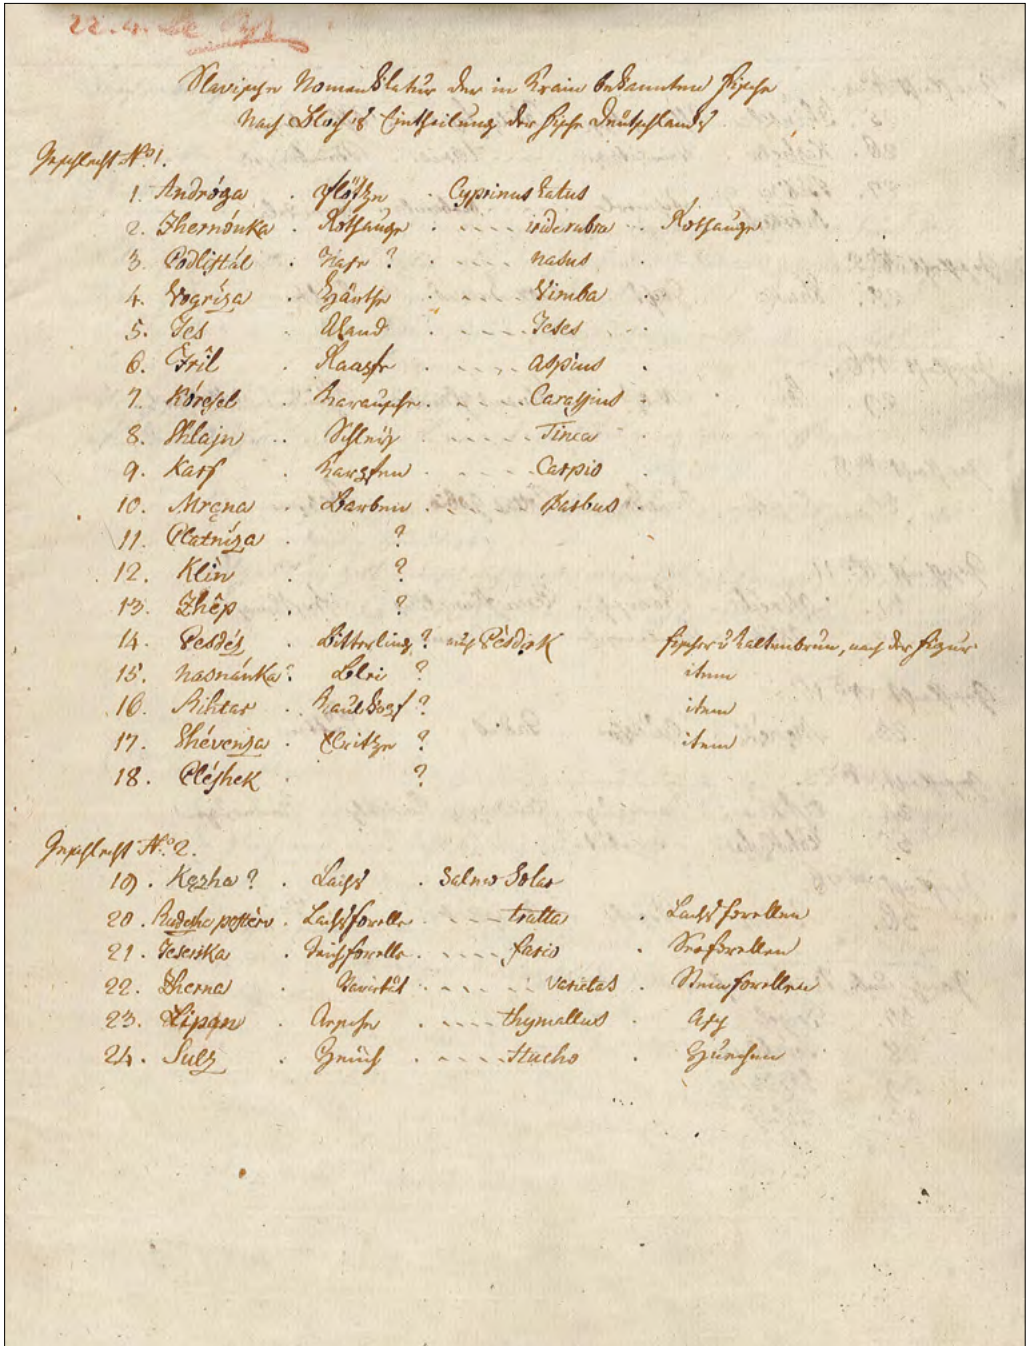 22.4.
Slavische Nomenklatur der in Krain bekannten Fische
nach Bloch's Eintheilung der Fische Deutschlands
Geschlecht No. 1.
1. Andróga . Plötze . Cyprinus
2. Zhernóuka . Rothauge . . . . . iride rubra . . Rothauge
3. Podlistál . Nase ? . . . . . nasus .
4. Vogríza . Zärthe . . . . . Vimba .
5. Jes . Aland . . . . . Jeses . . .
6. . Raapfe . . . . . Aspius .
7. Kóresel . Karausche . . . . . Carassius .
8. Shlajn . . Schleih . . . . . Tinca .
9. Karf . Karpfen . . . . . Carpio .
10. Mrena . Barben . . . Barbus .
11. Platníza . ?
12. Klìn . ?
13. Zhêp . ?
14. . Bitterling ? auch Pèsdek Fischer v Kaltenbrun, nach der Figur
15. nasnánka ? . Blei ? item
16. Rihtar . Kaulkopf ? item
17. Shévenza . Elritze ? item
18. Pléshek . ?
Geschlecht No. 2.
19. Kezha ? . Lachs . Salmo Salar
20. . Lachsforelle . . . . trutta . Lachsforellen
21. Jeserska . Teichforelle . . . . . fario . Seeforellen
22. Zherna . Varietät . . . . . varietas . Steinforellen
23. Lipan . Aesche . . . . . thymallus . Asch
24. Sulz . Heuch . . . . . Hucho . Huechen